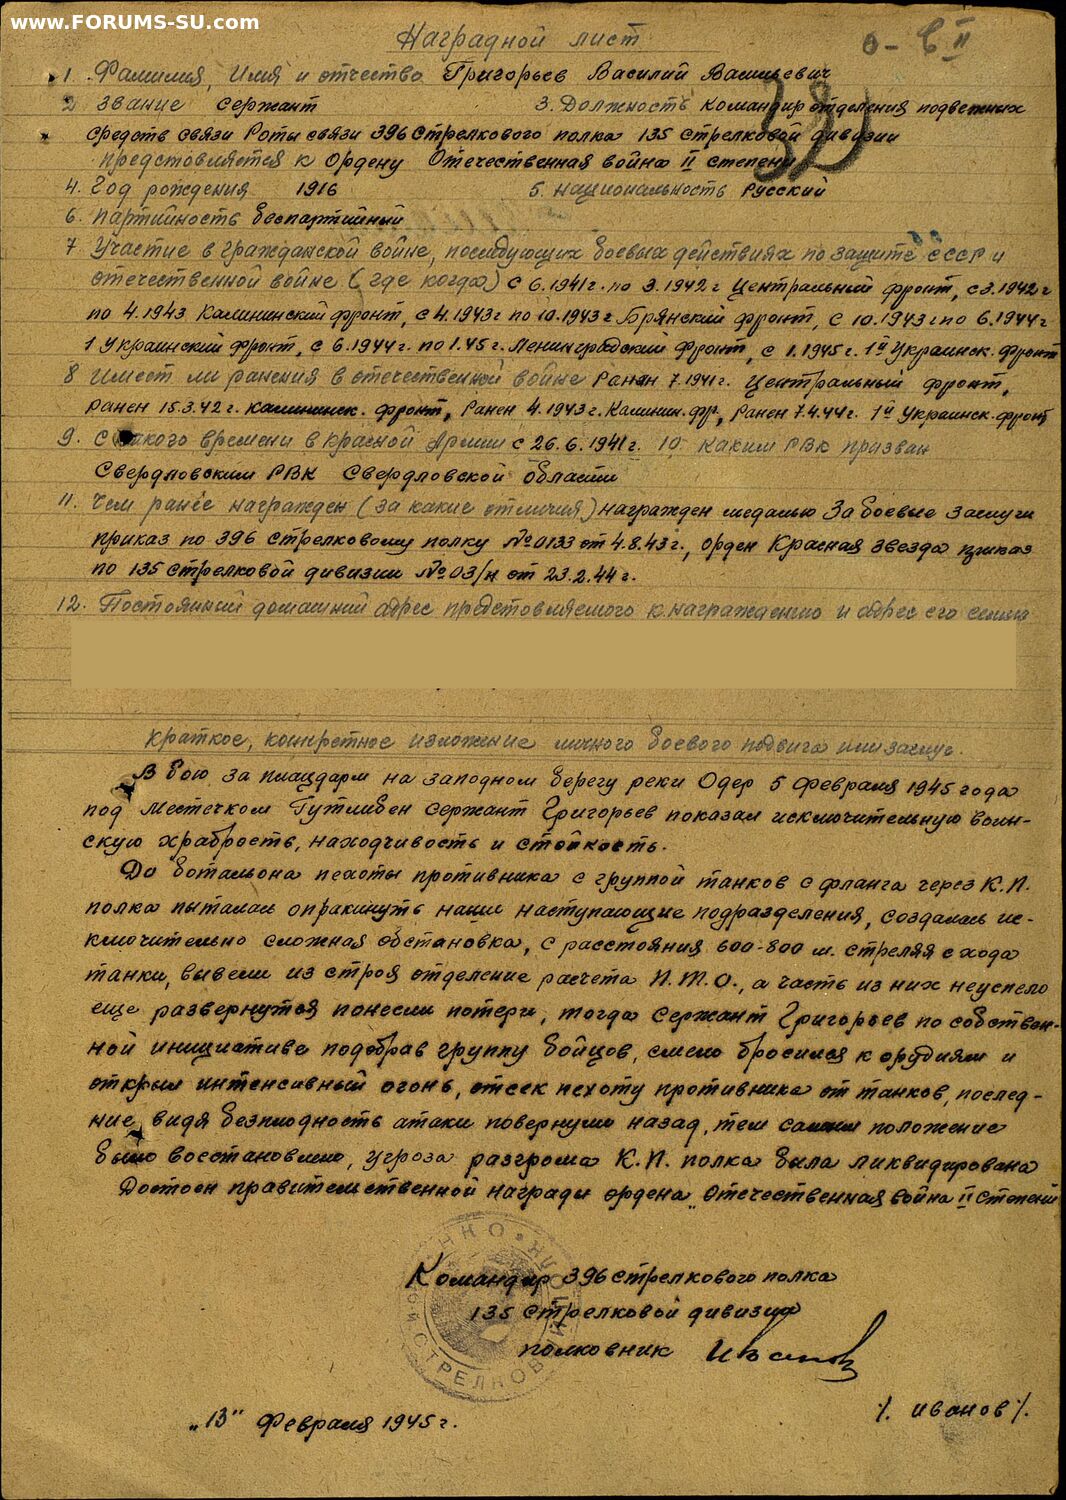 www.FORUMS-SU.com
Наградной лист
О-В II
1. Фамилия, Имя и отчество Григорьев Василий Васильевич
2 Звание сержант 3. Должность командир отделения подвежных
средств связи Роты связи 396 стрелкового полка 135 стрелковой дивизии
представляется к ордену Отечественная война II степени
4. Год рождения 1916 5. национальность Русский
6. партийность беспартийный
7. Участие в гражданской войне, последующих боевых действиях по защите СССР и
отечественной войне (где когда) с 6.1941г. по 3.1942г Центральный фронт, с 3.1942г
по 4.1943 Калининский фронт, с 4.1943г по 10.1943г. Брянский фронт, с 10.1943г по 6.1944г
1 Украинский фронт, с 6.1944г. по 1.45г. Ленинградский фронт, с 1.1945г. 1й Украинск. фронт
8 Имеет ли ранения в отечественной войне Ранен 7.1941г. Центральный фронт,
ранен 15.3.42г. калининск. фронт, Ранен 4.1943г. Калинин. фр, Ранен 7.4.44г. 1й Украинск. фронт
9. С какого времени в красной Армии с 26.6.1941г. 10. каким РВК призван
Свердловским РВК Свердловской области
11. Чем ранее награжден (за какие отличия) награжден медалью За боевые заслуги
приказ по 396 стрелковому полку №0133 от 4.8.43г., орден Красная звезда приказ
по 135 стрелковой дивизии №03/н от 23.2.44г.
12. Постоянный домашний адрес представляемого к награждению и адрес его семьи
краткое, конкретное изложение личного боевого подвига или заслуг.
В бою за плацдарм на западном берегу реки Одер 5 февраля 1945 года
под местечком Гутлибен сержант Григорьев показал исключительную воин-
скую храбрость, находчивость и стойкость.
До батальона пехоты противника с группой танков с фланга через К.П.
полка пыталась опракинуть наши наступающие подразделения, создалась ис-
ключительно сложная обстановка, с расстояния 600-800 м. стреляя с хода
танки, вывели из строя отделение расчета П.Т.О., а часть из них неуспело
еще развернутся понесли потери, тогда сержант Григорьев по собствен-
ной инициативе подобрав группу бойцов, смело бросился к орудиям и
открыл интенсивный огонь, отсек пехоту противника от танков, послед-
ние, видя безплодность атаки повернули назад, тем самым положение
было восстановлено, угроза разгрома К.П. полка была ликвидирована
Достоен правительственной награды ордена „Отечественная война II степени
Командир 396 стрелкового полка
135 стрелковой дивизии
полковник Иванов
/. Иванов /.
„13" февраля 1945г.